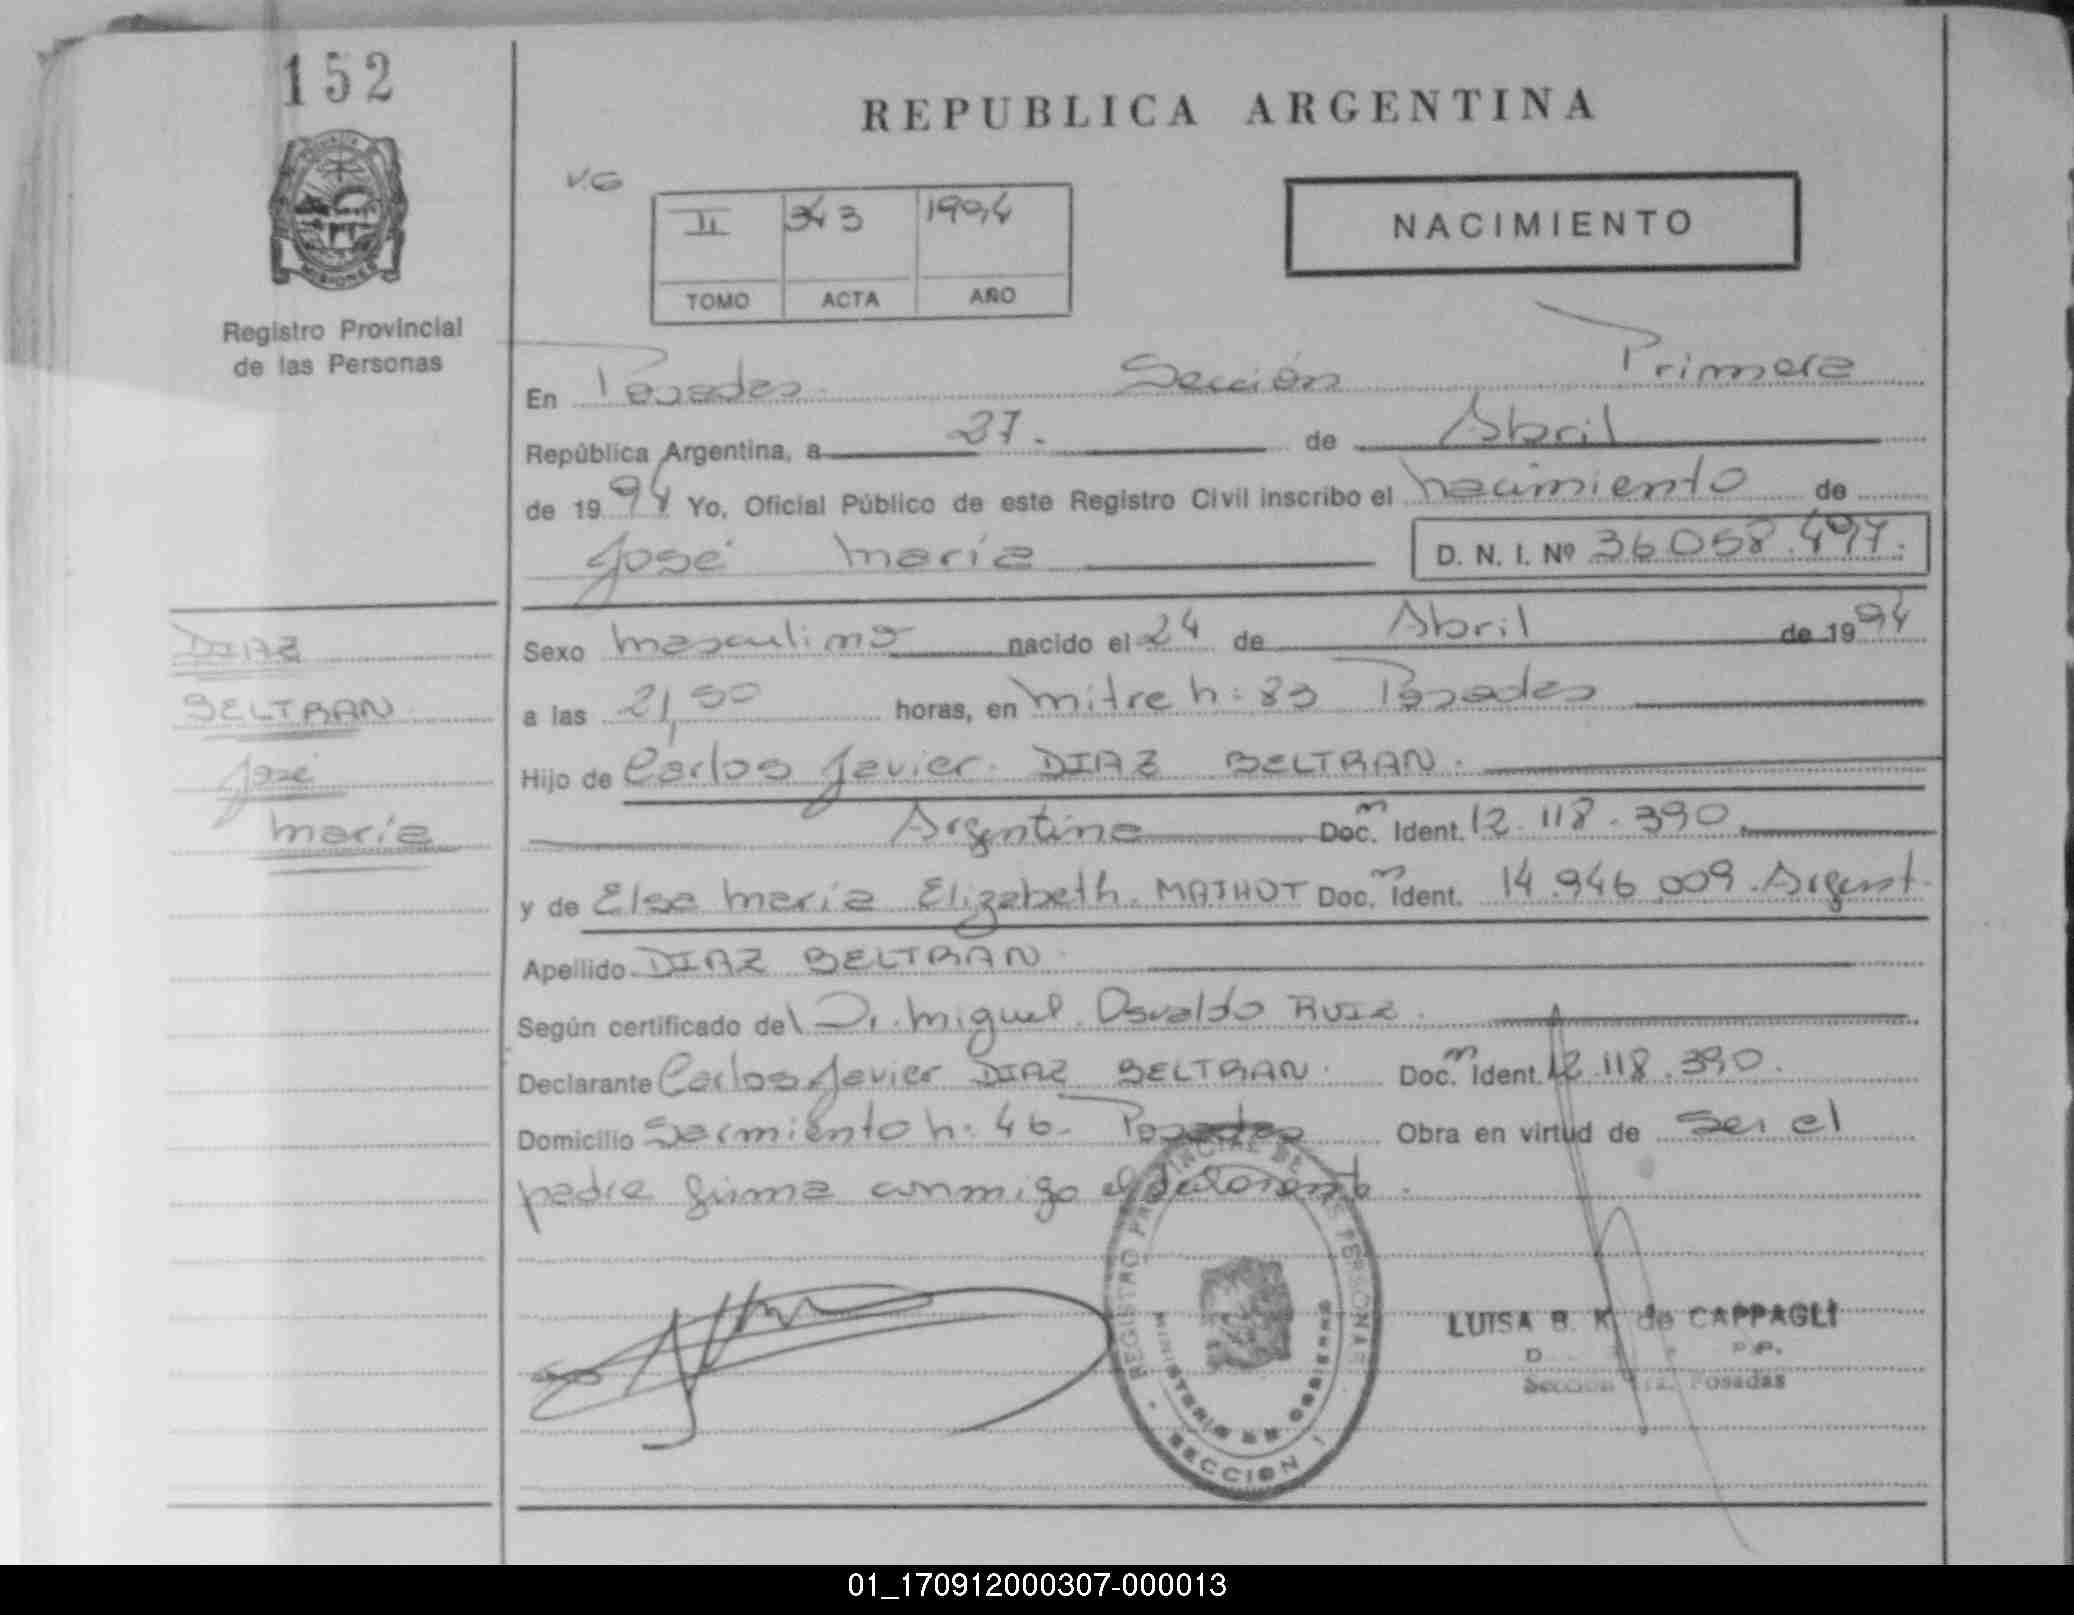 152
REPUBLICA ARGENTINA
PROVINCIA DE
MISIONES
Registro Provincial
de las Personas
V.G
II 343 1994
TOMO ACTA AÑO
NACIMIENTO
En Posadas Sección Primera
República Argentina, a 27. de Abril
de 1994 Yo, Oficial Público de este Registro Civil inscribo el nacimiento de
José María D. N. I. Nº 36.058.497.
DIAZ
BELTRAN
José
María
Sexo masculino nacido el 24 de Abril de 1994
a las 21,50 horas, en Mitre n: 83 Posadas
Hijo de Carlos Javier DIAZ BELTRAN.
Argentino Docm. Ident. 12.118.390.
y de Elsa María Elizabeth. MATHOT Docm. Ident. 14.946.009. Argent.
Apellido DIAZ BELTRAN
Según certificado del Dr. Miguel Osvaldo RUIZ.
Declarante Carlos Javier DIAZ BELTRAN. Docm. Ident. 12.118.390.
Domicilio Sarmiento n: 46. Posadas Obra en virtud de ser el
padre firma conmigo el
REGISTRO PROVINCIAL DE LAS PERSONAS
MINISTERIO DE GOBIERNO
SECCION 1
LUISA B. K. de CAPPAGLI
Sección 1ra. Posadas
01_170912000307-000013